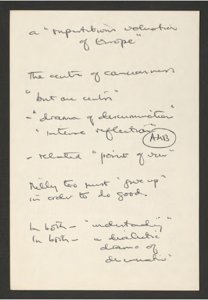 a "superstitious valuation
of Europe"
The centre of consciousness
"but one centre"
- "drama of discrimination"
"intense reflection"
AAB
- related "point of view"
Milly too must "give up"
in order to do good.
In both - "understanding"
In both - a dialectic
drama of